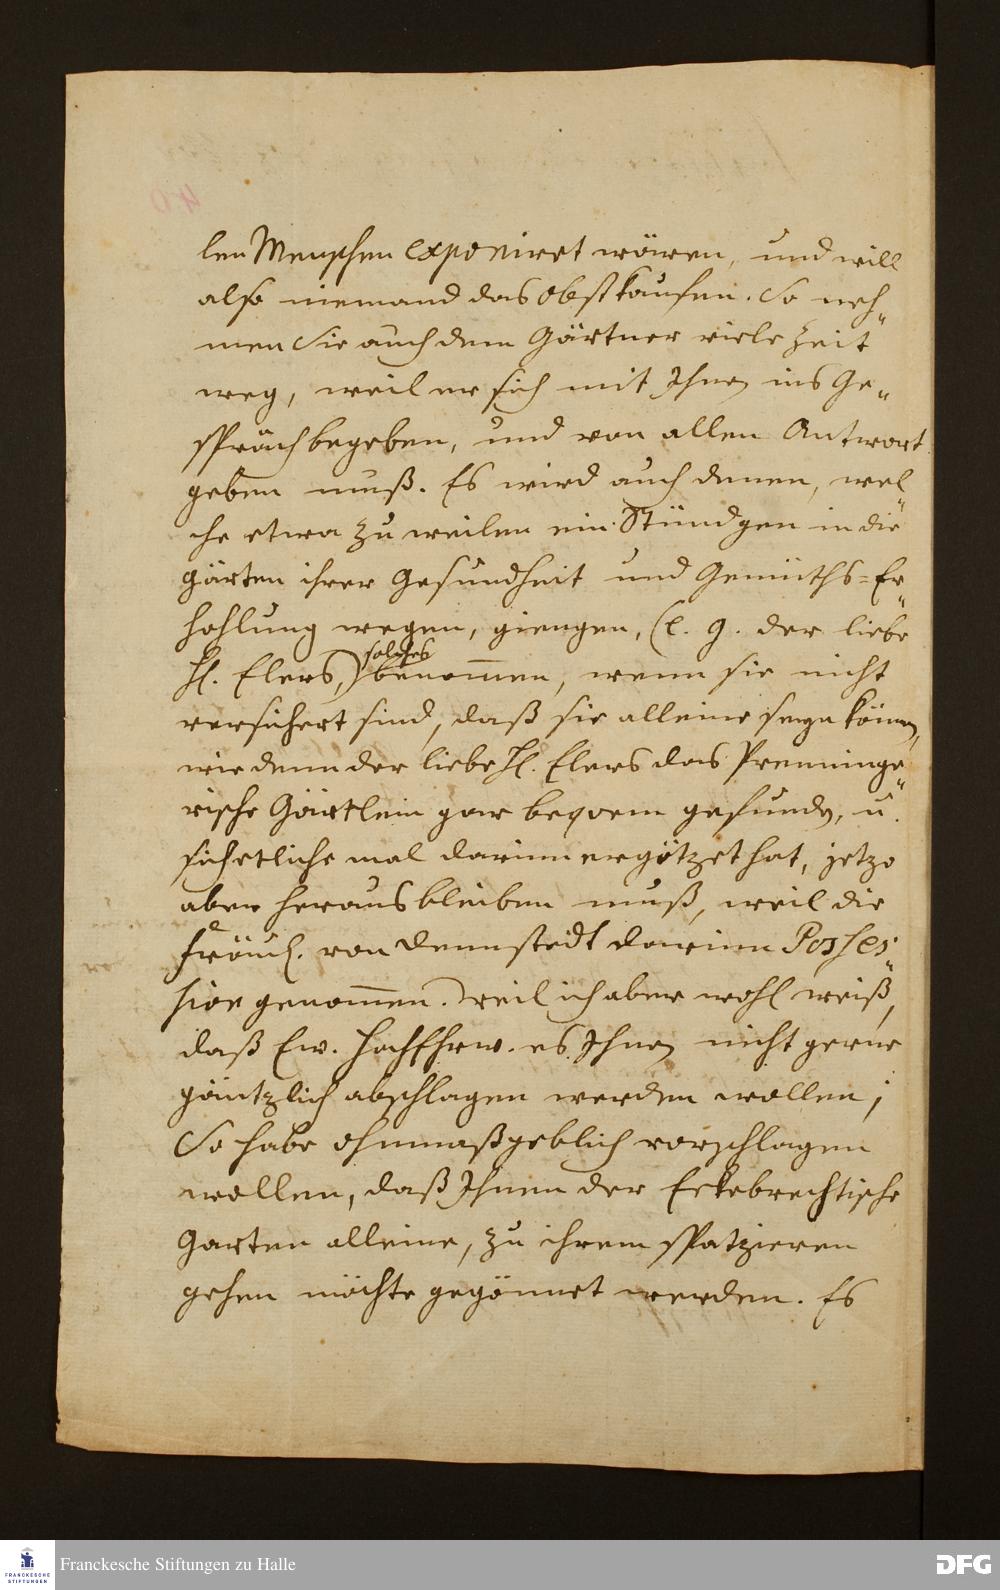 len Menschen exponiret wären, und will
also niemand das Obst kaufen. So neh„
men Sie auch dem Gärtner viele Zeit
weg, weil er sich mit Ihnen ins Ge„
spräch begeben, und von allen Antwort
geben muß. Es wird auch denen, wel„
che etwa zu weilen ein Stündgen in die
gärten ihrer Gesundheit und Gemüths-Er„
hohlung wegen, giengen, (e. g. der liebe
solches
H. Elers,) benom̅en, wenn sie nicht
versichert sind, daß sie alleine seyn können,
wie denn der liebe H. Elers das Prenninge„
rische Gärtlein gar beqvem gefunden, u.
sich etliche mal darinn ergötzet hat, jetzo
aber heraus bleiben muß, weil die
Fräul. von Dennstedt darinn Posses„
sion genom̅en. Weil ich aber wohl weiß,
daß Ew. HochEhrw. es Ihnen nicht gerne
gäntzlich abschlagen werden wollen;
So habe ohnmaßgeblich vorschlagen
wollen, daß Ihnen der Eckebrechtische
Garten alleine, zu ihrem spatzieren
gehen möchte gegönnet werden. Es
Franckesche Stiftungen zu Halle
FRANCKESCHE
STIFTUNGEN
DFG